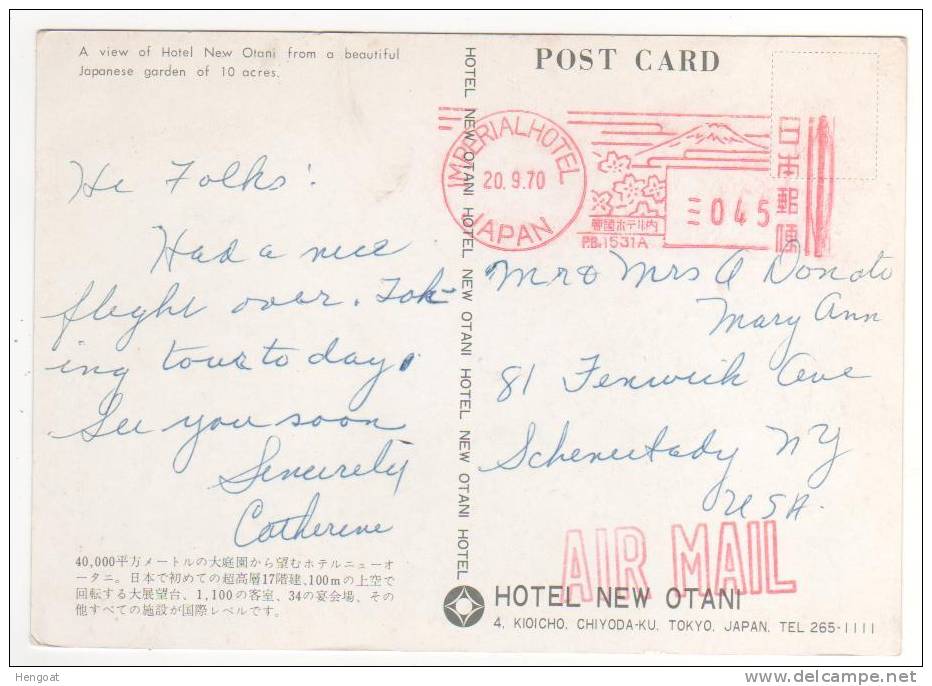 A view of Hotel New Otani from a beautiful
Japanese garden of 10 acres.
POST CARD
HOTEL NEW OTANI HOTEL NEW OTANI HOTEL NEW OTANI HOTEL NEW OTANI HOTEL
IMPERIAL HOTEL
20.9.70
JAPAN
帝國ホテル内
P.B. 1531A
045
日本郵便
Hi Folks!
Had a nice
flight over. Tak-
ing tour today.
See you soon
Sincerely
Catherine
Mr & Mrs A Donato
Mary Ann
81 Fenwick Ave
Schenectady NY
USA.
AIR MAIL
40,000平方メートルの大庭園から望むホテルニューオ
ータニ。日本で初めての超高層17階建、100mの上空で
回転する大展望台、1,100の客室、34の宴会場、その
他すべての施設が国際レベルです。
HOTEL NEW OTANI
4, KIOICHO, CHIYODA-KU, TOKYO, JAPAN. TEL 265-1111
Hengoat
delcampe.net